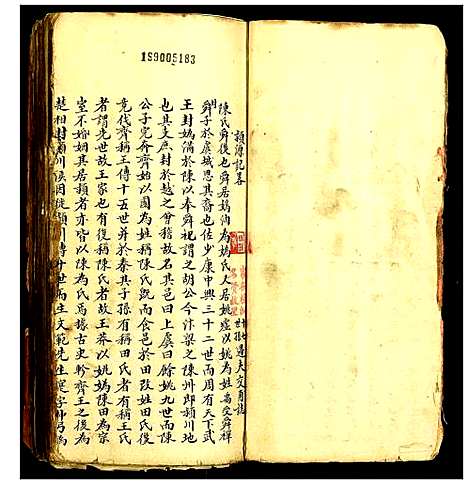 189005183
潁源記畧
世孫遇夫文甫誌
陳氏舜後也舜居媯汭為媯氏人居姚虛以姚為姓嵩受舜禪
舜子於虞城思其裔也佐少康中興三十二世而周有天下武
王封媯滿於陳以奉舜祀謂之胡公今汴梁之陳州郎潁川地
也其支庶封於越之會稽故名其邑曰上虞曰餘姚九世而陳
公子完奔齊始以國為姓稱陳氏旣而食邑於田改姓田氏後
竟伐齊稱王傳十五世并於秦其子孫有稱田氏者有稱王氏
者謂先世故王家也有復稱陳氏者故王莽以姚媯陳田為宗
室不婚姻其居潁者亦皆以陳為氏焉據古史軫齊王之後為
楚相封潁川侯因徙潁川傳廿世而生文範先生寔字仲弓為